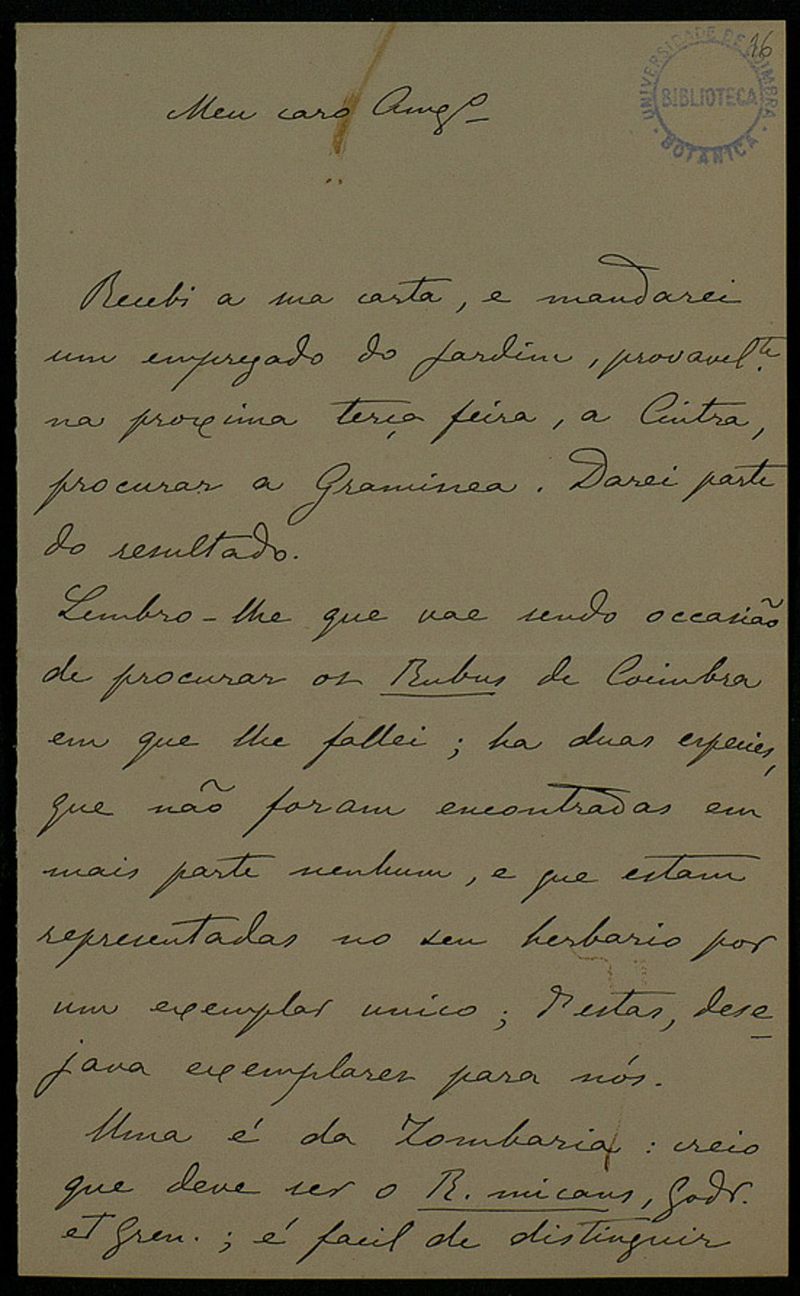 16
UNIVERSIDADE DE COIMBRA
BIBLIOTECA
BOTANICA
Meu caro Amgº
Recebi a sua carta, e mandarei
um empregado do Jardim, provavelte
na proxima terça feira, a Cintra,
procurar a Graminea. Darei parte
do resultado.
Lembro-lhe que vae sendo occasião
de procurar os Rubus de Coimbra
em que lhe fallei; ha duas especies,
que não foram encontradas em
mais parte nenhum, e que estam
representadas no seu herbario por
um exemplar unico; d'estas, dese-
java exemplares para nós.
Uma é da Zombaria: creio
que deve ser o R. micans, Godr.
et Gren.; é facil de distinguir